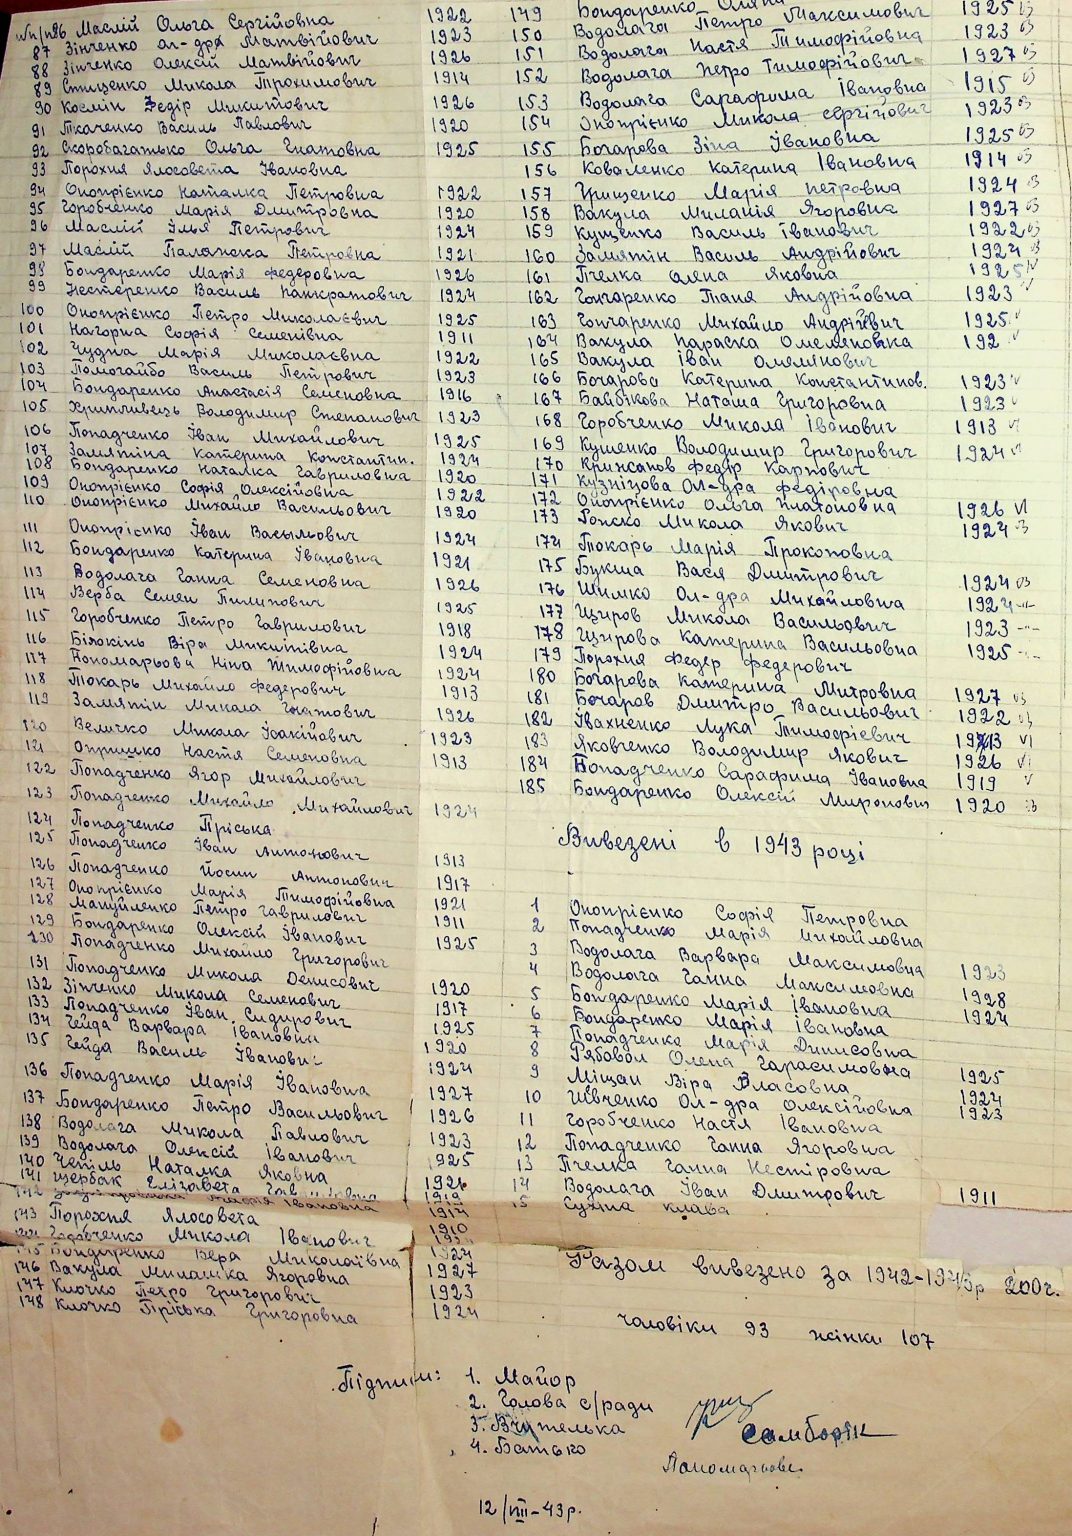 №п/п 86 Маслій Ольга Сергіївна 1922
87 Зінченко Ол-дра Матвійович 1923
88 Зінченко Олексій Матвійович 1926
89 Стищенко Микола Трохимович 1914
90 Космін Федір Микитович 1926
91 Ткаченко Василь Павлович 1920
92 Скоробагатько Ольга Гнатовна 1925
93 Порохня Ялосовета Івановна
94 Онопрієнко Наталка Петровна 1922
95 Горобченко Марія Дмитровна 1920
96 Маслій Ілья Петрович 1924
97 Маслій Палажка Петровна 1921
98 Бондаренко Марія Федеровна 1926
99 Нестеренко Василь Панкратович 1924
100 Онопрієнко Петро Миколаєвич 1925
101 Нагорна Софія Семенівна 1911
102 Чудна Марія Миколаєвна 1922
103 Помогайбо Василь Петрович 1923
104 Бондаренко Анастасія Семеновна 1916
105 Володимир Степанович 1923
106 Попадченко Іван Михайлович 1925
107 Замятіна Катерина Константин. 1924
108 Бондаренко Наталка Гавриловна 1920
109 Онопрієнко Софія Олексійовна 1922
110 Онопрієнко Михайло Васильович 1920
111 Онопрієнко Іван Васильович 1924
112 Бондаренко Катерина Івановна 1921
113 Водолага Ганна Семеновна 1926
114 Верба Семен Пилипович 1925
115 Горобченко Петро Гаврилович 1918
116 Білокінь Віра Микитівна 1924
117 Пономарьова Ніна Тимофійовна 1924
118 Токарь Михайло Федерович 1913
119 Замятін Микола Гнатович 1926
120 Величко Микола Іоакійович 1923
121 Опришко Настя Семеновна 1913
122 Попадченко Ягор Михайлович
123 Попадченко Михайло Михайлович 1924
124 Попадченко Пріська
125 Попадченко Іван Антонович 1913
126 Попадченко Йосип Антонович 1917
127 Онопрієнко Марія Тимофійовна 1921
128 Мануйленко Петро Гаврилович 1911
129 Бондаренко Олексій Іванович 1925
130 Попадченко Михайло Григорович
131 Попадченко Микола Денисович 1920
132 Зінченко Микола Семенович 1917
133 Попадченко Іван Сидирович 1925
134 Гейда Варвара Івановна 1920
135 Гейда Василь Іванович 1924
136 Попадченко Марія Івановна 1927
137 Бондаренко Петро Васильович 1926
138 Водолага Микола Павлович 1923
139 Водолага Олексій Іванович 1925
140 Чепіль Наталка Яковна 1921
141 Щербак Елізавета 1919
142 Івановна 1914
143 Порохня Ялосовета 1910
144 Горобченко Микола Іванович
145 Бондаренко Вера Миколаївна 1924
146 Вакула Милашка Ягоровна 1927
147 Клочко Петро Григорович 1923
148 Клочко Пріська Григоровна 1924
149 Бондаренко Оляна 1925
150 Водолага Петро Максимович 1923
151 Водолага Настя Тимофійовна 1927
152 Водолага Петро Тимофійович 1915
153 Водолага Сарафима Івановна 1923
154 Онопрієнко Микола Сергійович 1925
155 Бочарова Зіна Івановна 1914
156 Коваленко Катерина Івановна 1924
157 Грищенко Марія Петровна 1927
158 Вакула Миланія Ягоровна 1922
159 Кущенко Василь Іванович 1924
160 Замятін Василь Андрійович 1925
161 Пчелка Олена Яковна 1923
162 Гончаренко Таня Андрійовна 1925
163 Гончаренко Михайло Андрійович 192
164 Вакула Параска Омеляновна
165 Вакула Іван Омелянович
166 Бочарова Катерина Константинов. 1923
167 Бабікова Наташа Григоровна 1923
168 Горобченко Микола Іванович 1913
169 Кущенко Володимир Григорович 1924
170 Крижанов Федір Карпович
171 Кузніцова Ол-дра Федіровна
172 Онопрієнко Ольга Платоновна 1926
173 Понско Микола Якович 1924
174 Токарь Марія Прокоповна
175 Букша Вася Дмитрович 1924
176 Шимко Ол-дра Михайловна 1924 -"-
177 Щиров Микола Васильович 1923 -"-
178 Щирова Катерина Васильовна 1925 -"-
179 Порохня Федер Федерович
180 Бочарова Катерина Митровна 1927
181 Бочаров Дмитро Васильович 1922
182 Івахненко Лука Тимофієвич 1913
183 Яковченко Володимир Якович 1926
184 Попадченко Сарафима Івановна 1919
185 Бондаренко Олексій Миронович 1920
Вивезені в 1943 році
1 Онопрієнко Софія Петровна
2 Попадченко Марія Михайловна
3 Водолага Варвара Максимовна 1923
4 Водолага Ганна Максимовна 1928
5 Бондаренко Марія Івановна 1924
6 Бондаренко Марія Івановна
7 Попадченко Марія Динисовна
8 Рябовол Олена Гарасимовна 1925
9 Міщан Віра Власовна 1924
10 Шевченко Ол-дра Олексійовна 1923
11 Горобченко Настя Івановна
12 Попадченко Ганна Ягоровна
13 Пчелка Ганна Нестіровна
14 Водолага Іван Дмитрович 1911
15 Сухіна Клава
Разом вивезено за 1942-1943р 200ч.
чоловіки 93 жінки 107
Підписи: 1. Майор
2. Голова с/ради
3. Вчителька Самборік
4. Батько Пономарьове
12/VIII-43р.